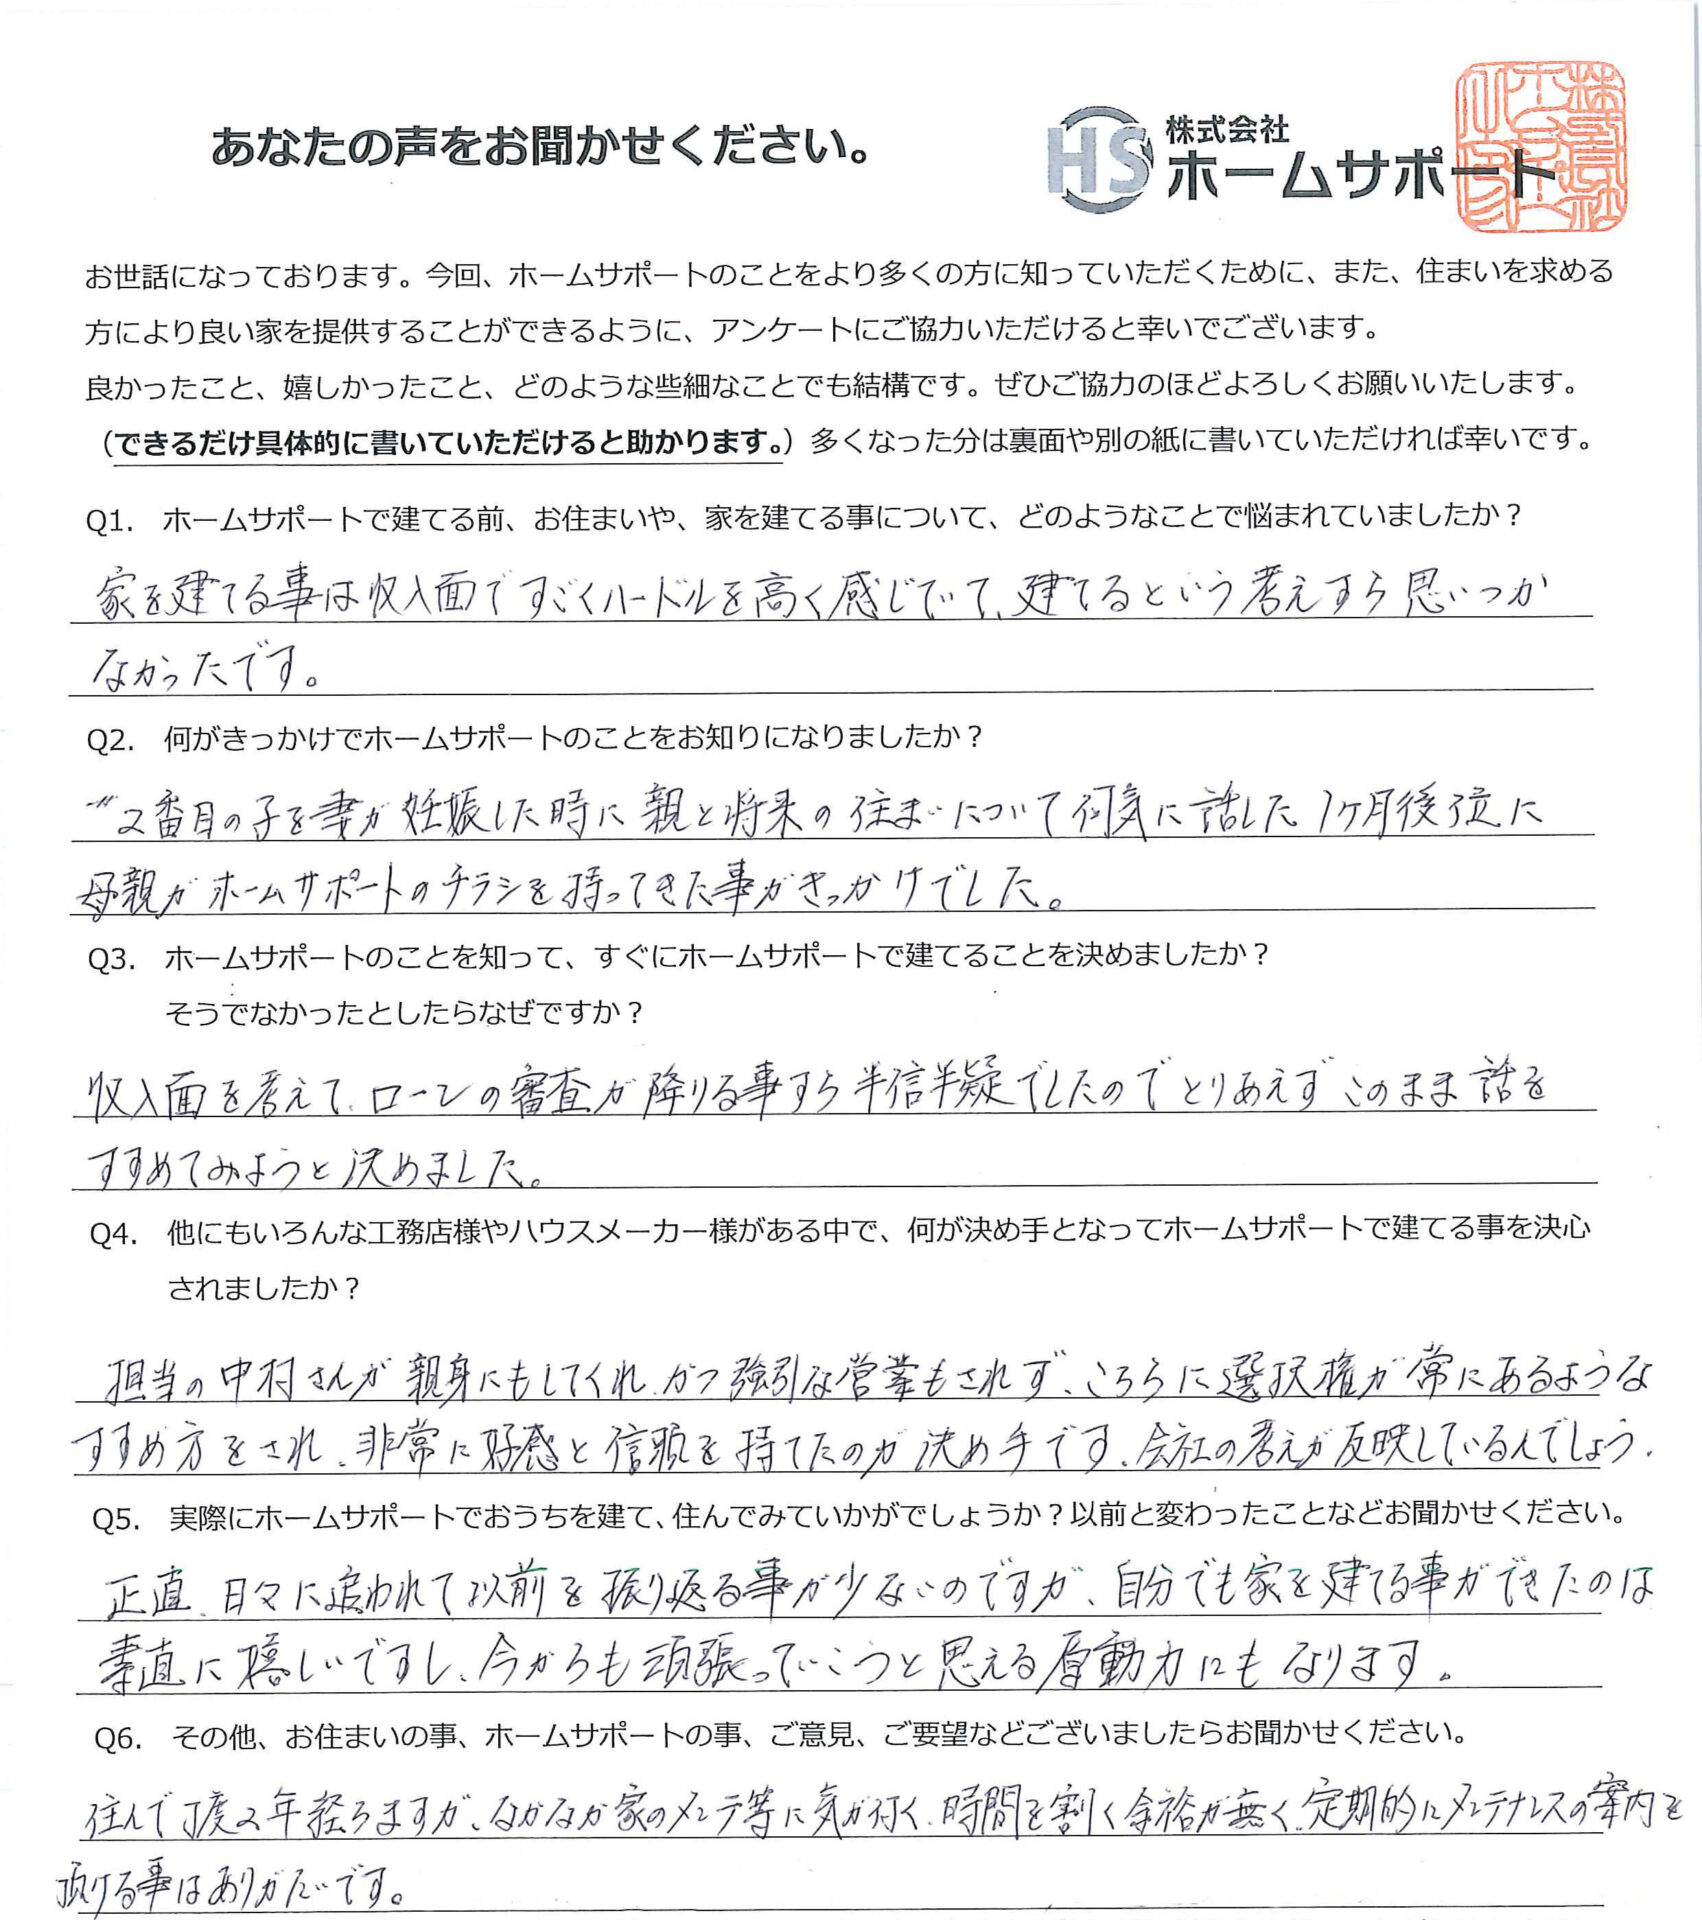 あなたの声をお聞かせください。
HS 株式会社
ホームサポート
お世話になっております。今回、ホームサポートのことをより多くの方に知っていただくために、また、住まいを求める
方により良い家を提供することができるように、アンケートにご協力いただけると幸いでございます。
良かったこと、嬉しかったこと、どのような些細なことでも結構です。ぜひご協力のほどよろしくお願いいたします。
（できるだけ具体的に書いていただけると助かります。）多くなった分は裏面や別の紙に書いていただければ幸いです。
Q1. ホームサポートで建てる前、お住まいや、家を建てる事について、どのようなことで悩まれていましたか？
家を建てる事は収入面ですごくハードルを高く感じていて、建てるという考えすら思いつか
なかったです。
Q2. 何がきっかけでホームサポートのことをお知りになりましたか？
2番目の子を妻が妊娠した時に親と将来の住まいについて何気に話した1ヶ月後位に
母親がホームサポートのチラシを持ってきた事がきっかけでした。
Q3. ホームサポートのことを知って、すぐにホームサポートで建てることを決めましたか？
そうでなかったとしたらなぜですか？
収入面を考えて、ローンの審査が降りる事すら半信半疑でしたのでとりあえずこのまま話を
すすめてみようと決めました。
Q4. 他にもいろんな工務店様やハウスメーカー様がある中で、何が決め手となってホームサポートで建てる事を決心
されましたか？
担当の中村さんが親身にもしてくれ、かつ強引な営業もされず、こちらに選択権が常にあるような
すすめ方をされ、非常に好感と信頼を持てたのが決め手です、会社の考えが反映しているんでしょう、
Q5. 実際にホームサポートでおうちを建て、住んでみていかがでしょうか？以前と変わったことなどお聞かせください。
正直、日々に追われて以前を振り返る事が少ないのですが、自分でも家を建てる事ができたのは
素直に嬉しいですし、今からも頑張っていこうと思える原動力にもなります。
Q6. その他、お住まいの事、ホームサポートの事、ご意見、ご要望などございましたらお聞かせください。
住んで丁度2年経ちますが、なかなか家のメンテ等に気が行く、時間を割く余裕が無く、定期的にメンテナンスの案内を
頂ける事はありがたいです。